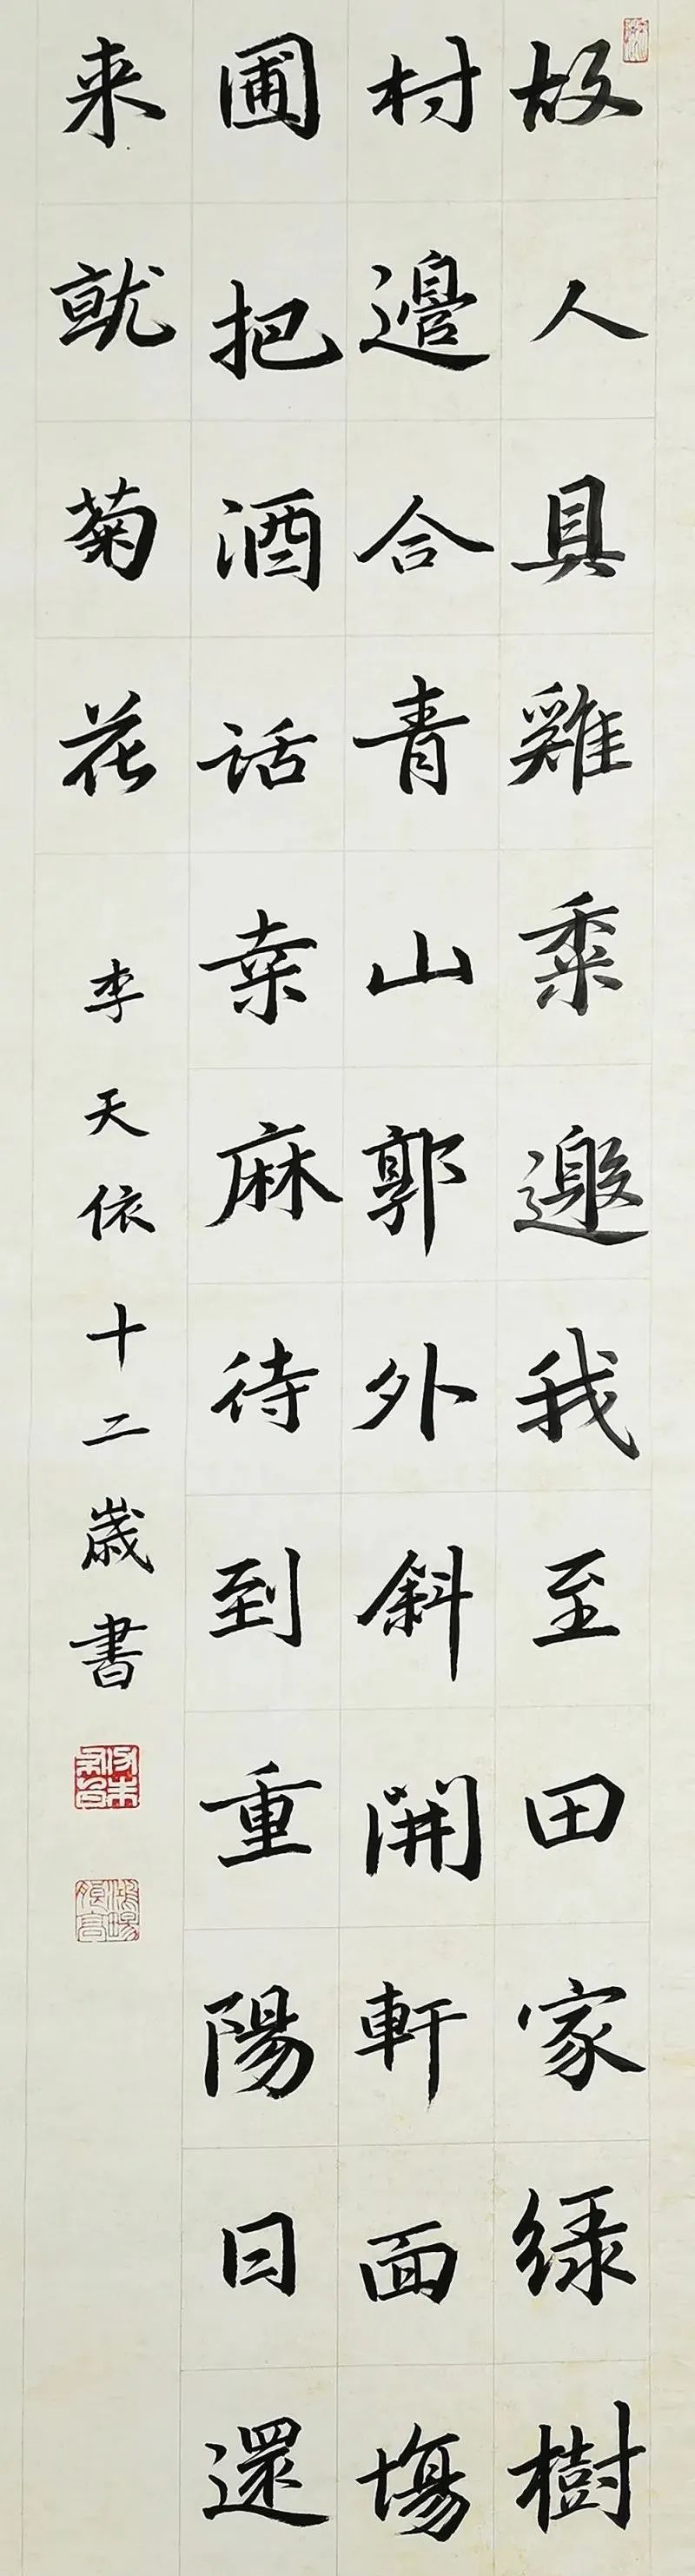 故人具雞黍邀我至田家緑樹
村邊合青山郭外斜開軒面場
圃把酒話桒麻待到重陽日還
来就菊花
李天依十二歳書